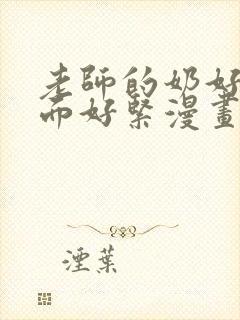 老師的奶好
而好緊漫畫
湮葉